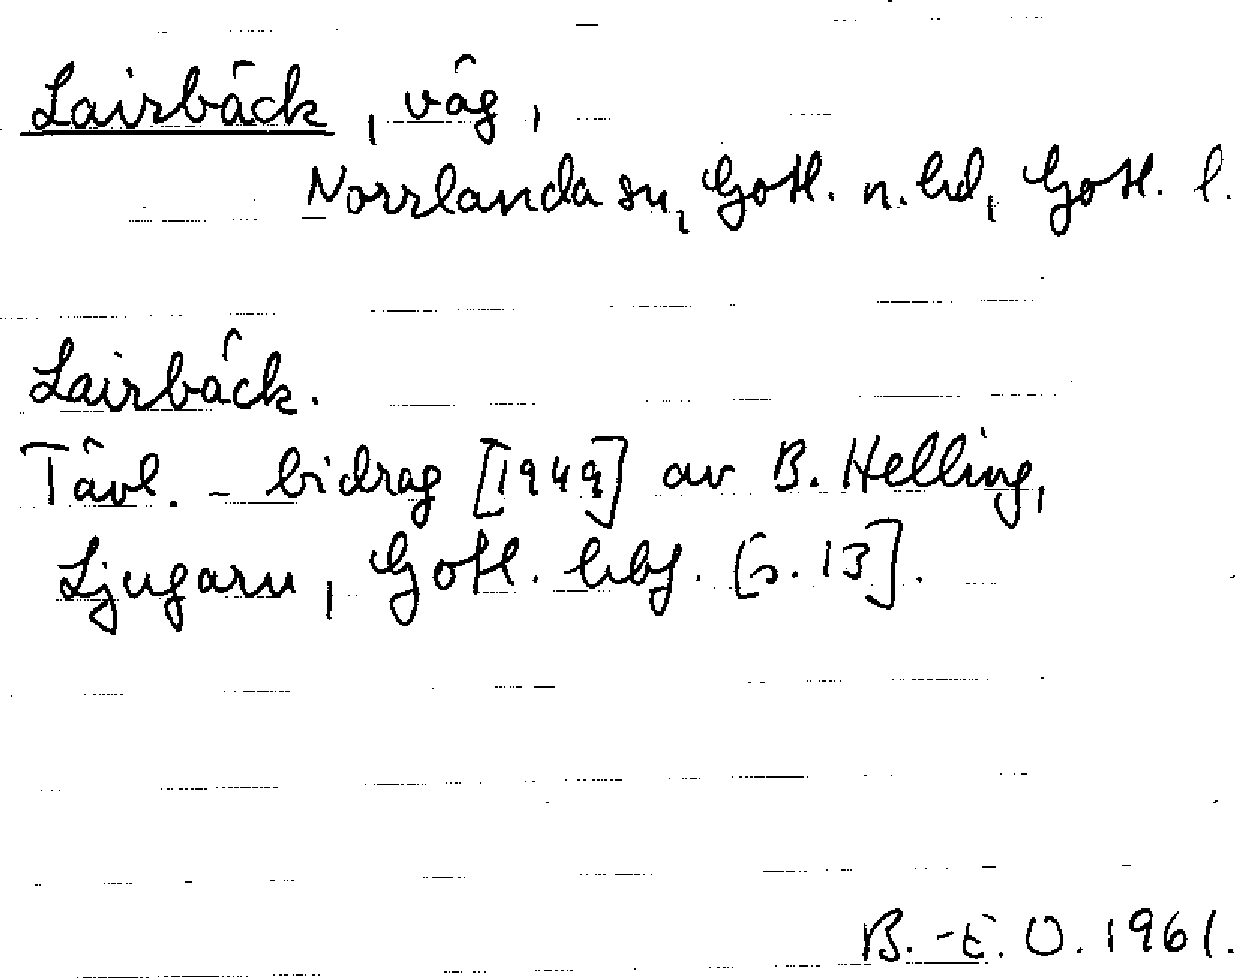 Lairbäck, väg,
Norrlanda sn, Gotl. n. hd, Gotl. l.
Lairbäck.
Tävl. - bidrag [1949] av B. Helling,
Ljugarn, Gotl. hbf. [s. 13].
B.-E. O. 1961.